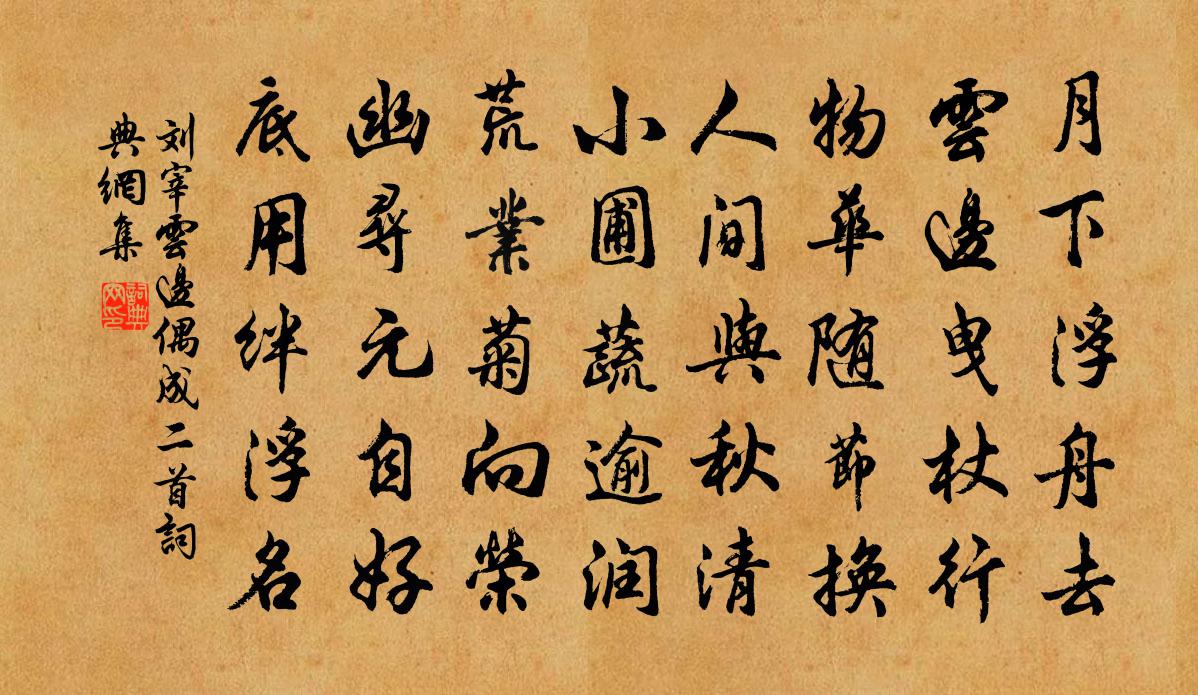 月下浮舟去
雲邊曳杖行
物華随節換
人间與秋清
小圃蔬逾润
荒業菊向榮
幽尋元自好
底用绊浮名
刘宰雲邊偶成二首詞
典網集
詞典